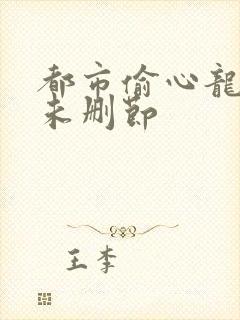 都市偷心龍
未删節
王李